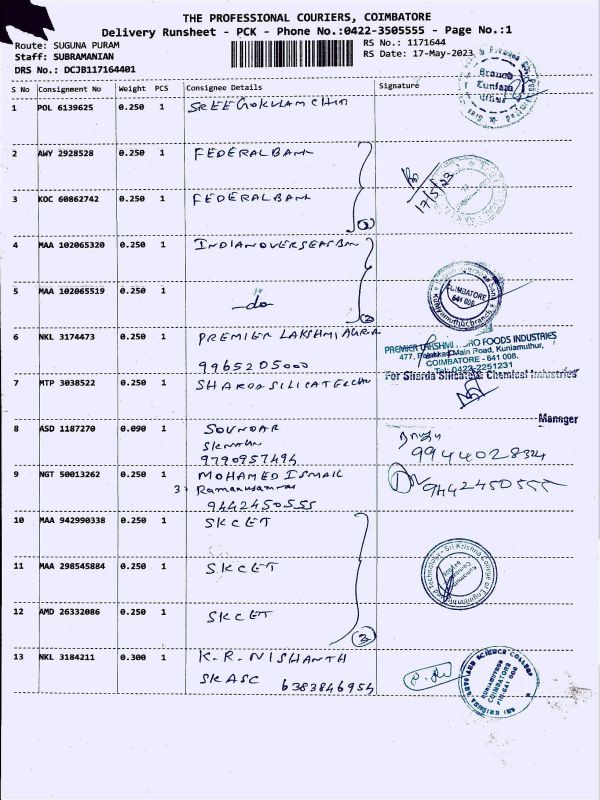 THE PROFESSIONAL COURIERS, COIMBATORE
Delivery Runsheet - PCK - Phone No.:0422-3505555 - Page No.:1
Route: SUGUNA PURAM
RS No.: 1171644
Staff: SUBRAMANIAN
RS Date: 17-May-2023
DRS No.: DCJB117164401
S No Consignment No Weight PCS Consignee Details Signature
1 POL 6139625 0.250 1 SREE GOKULAM CHIT
Branch
2 AWY 2928528 0.250 1 FEDERAL BANK
17/5/23
3 KOC 60862742 0.250 1 FEDERAL BANK
4 MAA 102065320 0.250 1 INDIAN OVERSEAS BAN
COIMBATORE
641 008
Kuniyamuthur branch
5 MAA 102065519 0.250 1 -do-
6 NKL 3174473 0.250 1 PREMIER LAKSHMI AGRO
9965205000
PREMIER LAKSHMI AGRO FOODS INDUSTRIES
477, Palakkad Main Road, Kuniamuthur,
COIMBATORE - 641 008.
Tel: 0422-2251231
7 MTP 3038522 0.250 1 SHARDA SILICATE
For Sharda Silicate & Chemical Industries
Manager
8 ASD 1187270 0.090 1 SOUNDAR
9790957494
9944028324
9 NGT 50013262 0.250 1 MOHAMED ISMAIL
9442450555
9442450555
10 MAA 942990338 0.250 1 SKCET
11 MAA 298545884 0.250 1 SKCET
Sri Krishna College of Engineering and Technology
12 AMD 26332086 0.250 1 SKCET
3
13 NKL 3184211 0.300 1 K.R. NISHANTH
SKASC 6383846954
KUNIAMUTHUR
COIMBATORE
PIN-641 008